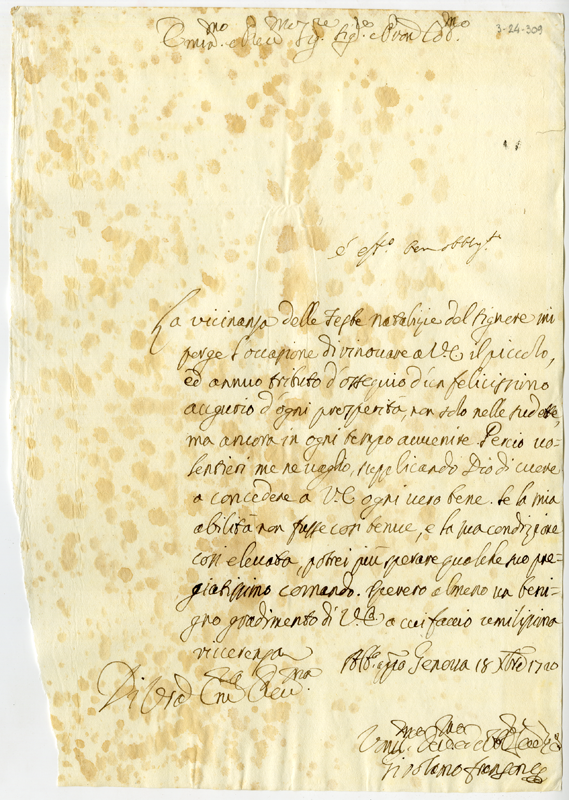 Emin.mo e Rev.mo Sig. Sig.re e Pron Col.mo
3-24-309
é eff.o ben obblg.
La vicinanza delle Feste natalizie del Signore mi
porge l'occasione di rinouare a V.E. il piccolo,
ed annuo tributo d'ossequio d'un felicissimo
augurio d'ogni prosperità, non solo nelle sudette,
ma ancora in ogni tempo auuenire. Percio uo-
lentieri me ne uaglio, supplicando Dio di cuore
a concedere a V.E. ogni uero bene. Se la mia
abilità non fusse cosi tenue, e la sua condizione
cosi eleuata, potrei più sperare qualche suo pre-
giatissimo comando. Spererò almeno un beni-
gno gradimento di V.E. a cui faccio umilissima
riverenza
Genova 18 Xbre 1720
Di V.ra Em.za Reu.ma
Girolamo